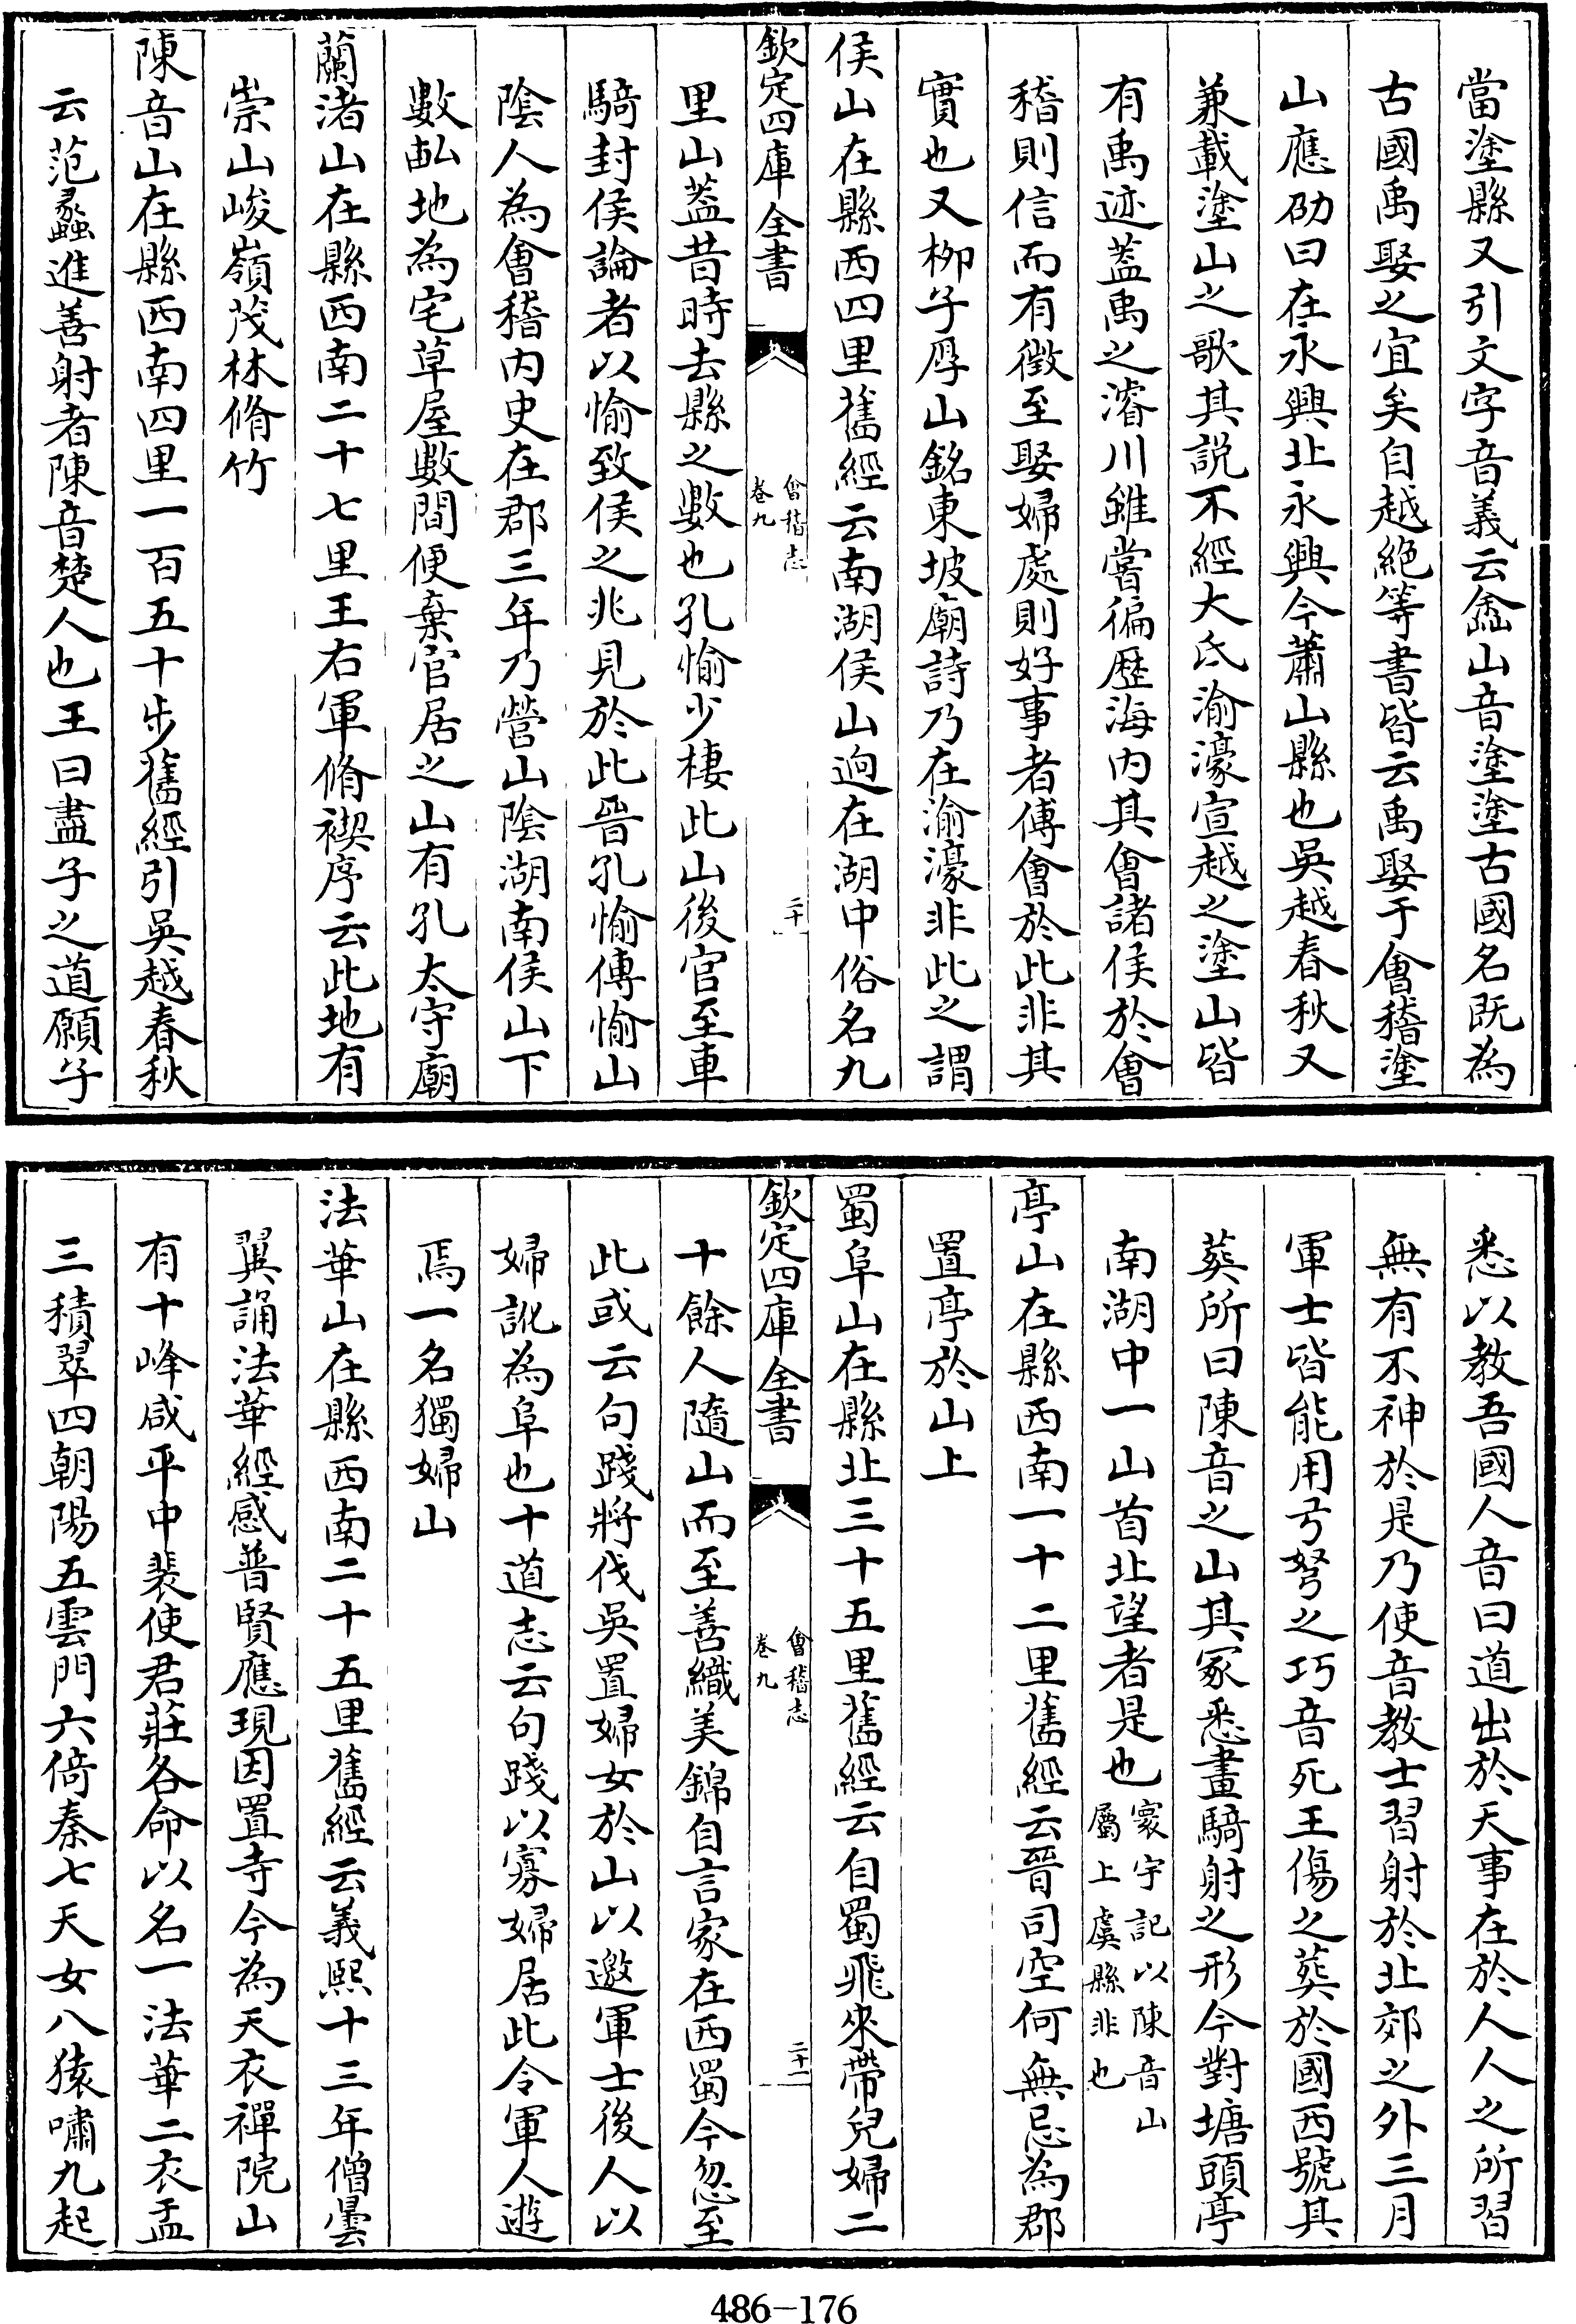 當塗縣又引文字音義云嵞山音塗塗古國名既為
古國禹娶之宜矣自越絶等書皆云禹娶于會稽塗
山應劭曰在永興北永興今蕭山縣也吳越春秋又
兼載塗山之歌其説不經大氐渝濠宣越之塗山皆
有禹迹蓋禹之濬川雖嘗徧歴海内其會諸侯於會
稽則信而有徴至娶婦處則好事者傅會於此非其
實也又栁子厚山銘東坡廟詩乃在渝濠非此之謂
侯山在縣西四里舊經云南湖侯山逈在湖中俗名九
欽定四庫全書
會稽志
卷九
二十
里山蓋昔時去縣之數也孔愉少棲此山後官至車
騎封侯論者以愉致侯之兆見於此晉孔愉傳愉山
隂人為會稽内史在郡三年乃營山隂湖南侯山下
數畝地為宅草屋數間便棄官居之山有孔太守廟
蘭渚山在縣西南二十七里王右軍脩禊序云此地有
崇山峻嶺茂林脩竹
陳音山在縣西南四里一百五十步舊經引吳越春秋
云范蠡進善射者陳音楚人也王曰盡子之道願子
悉以教吾國人音曰道出於天事在於人人之所習
無有不神於是乃使音教士習射於北郊之外三月
軍士皆能用弓弩之巧音死王傷之葬於國西號其
葬所曰陳音之山其冢悉畫騎射之形今對塘頭亭
南湖中一山首北望者是也寰宇記以陳音山
屬上虞縣非也
亭山在縣西南一十二里舊經云晉司空何無忌為郡
置亭於山上
蜀阜山在縣北三十五里舊經云自蜀飛來帶兒婦二
欽定四庫全書
會稽志
卷九
二十一
十餘人隨山而至善織美錦自言家在西蜀今忽至
此或云句踐將伐吳置婦女於山以邀軍士後人以
婦訛為阜也十道志云句踐以寡婦居此令軍人遊
焉一名獨婦山
法華山在縣西南二十五里舊經云義熙十三年僧曇
翼誦法華經感普賢應現因置寺今為天衣禪院山
有十峰咸平中裴使君莊各命以名一法華二衣盂
三積翠四朝陽五雲門六倚秦七天女八猿嘯九起
486-176